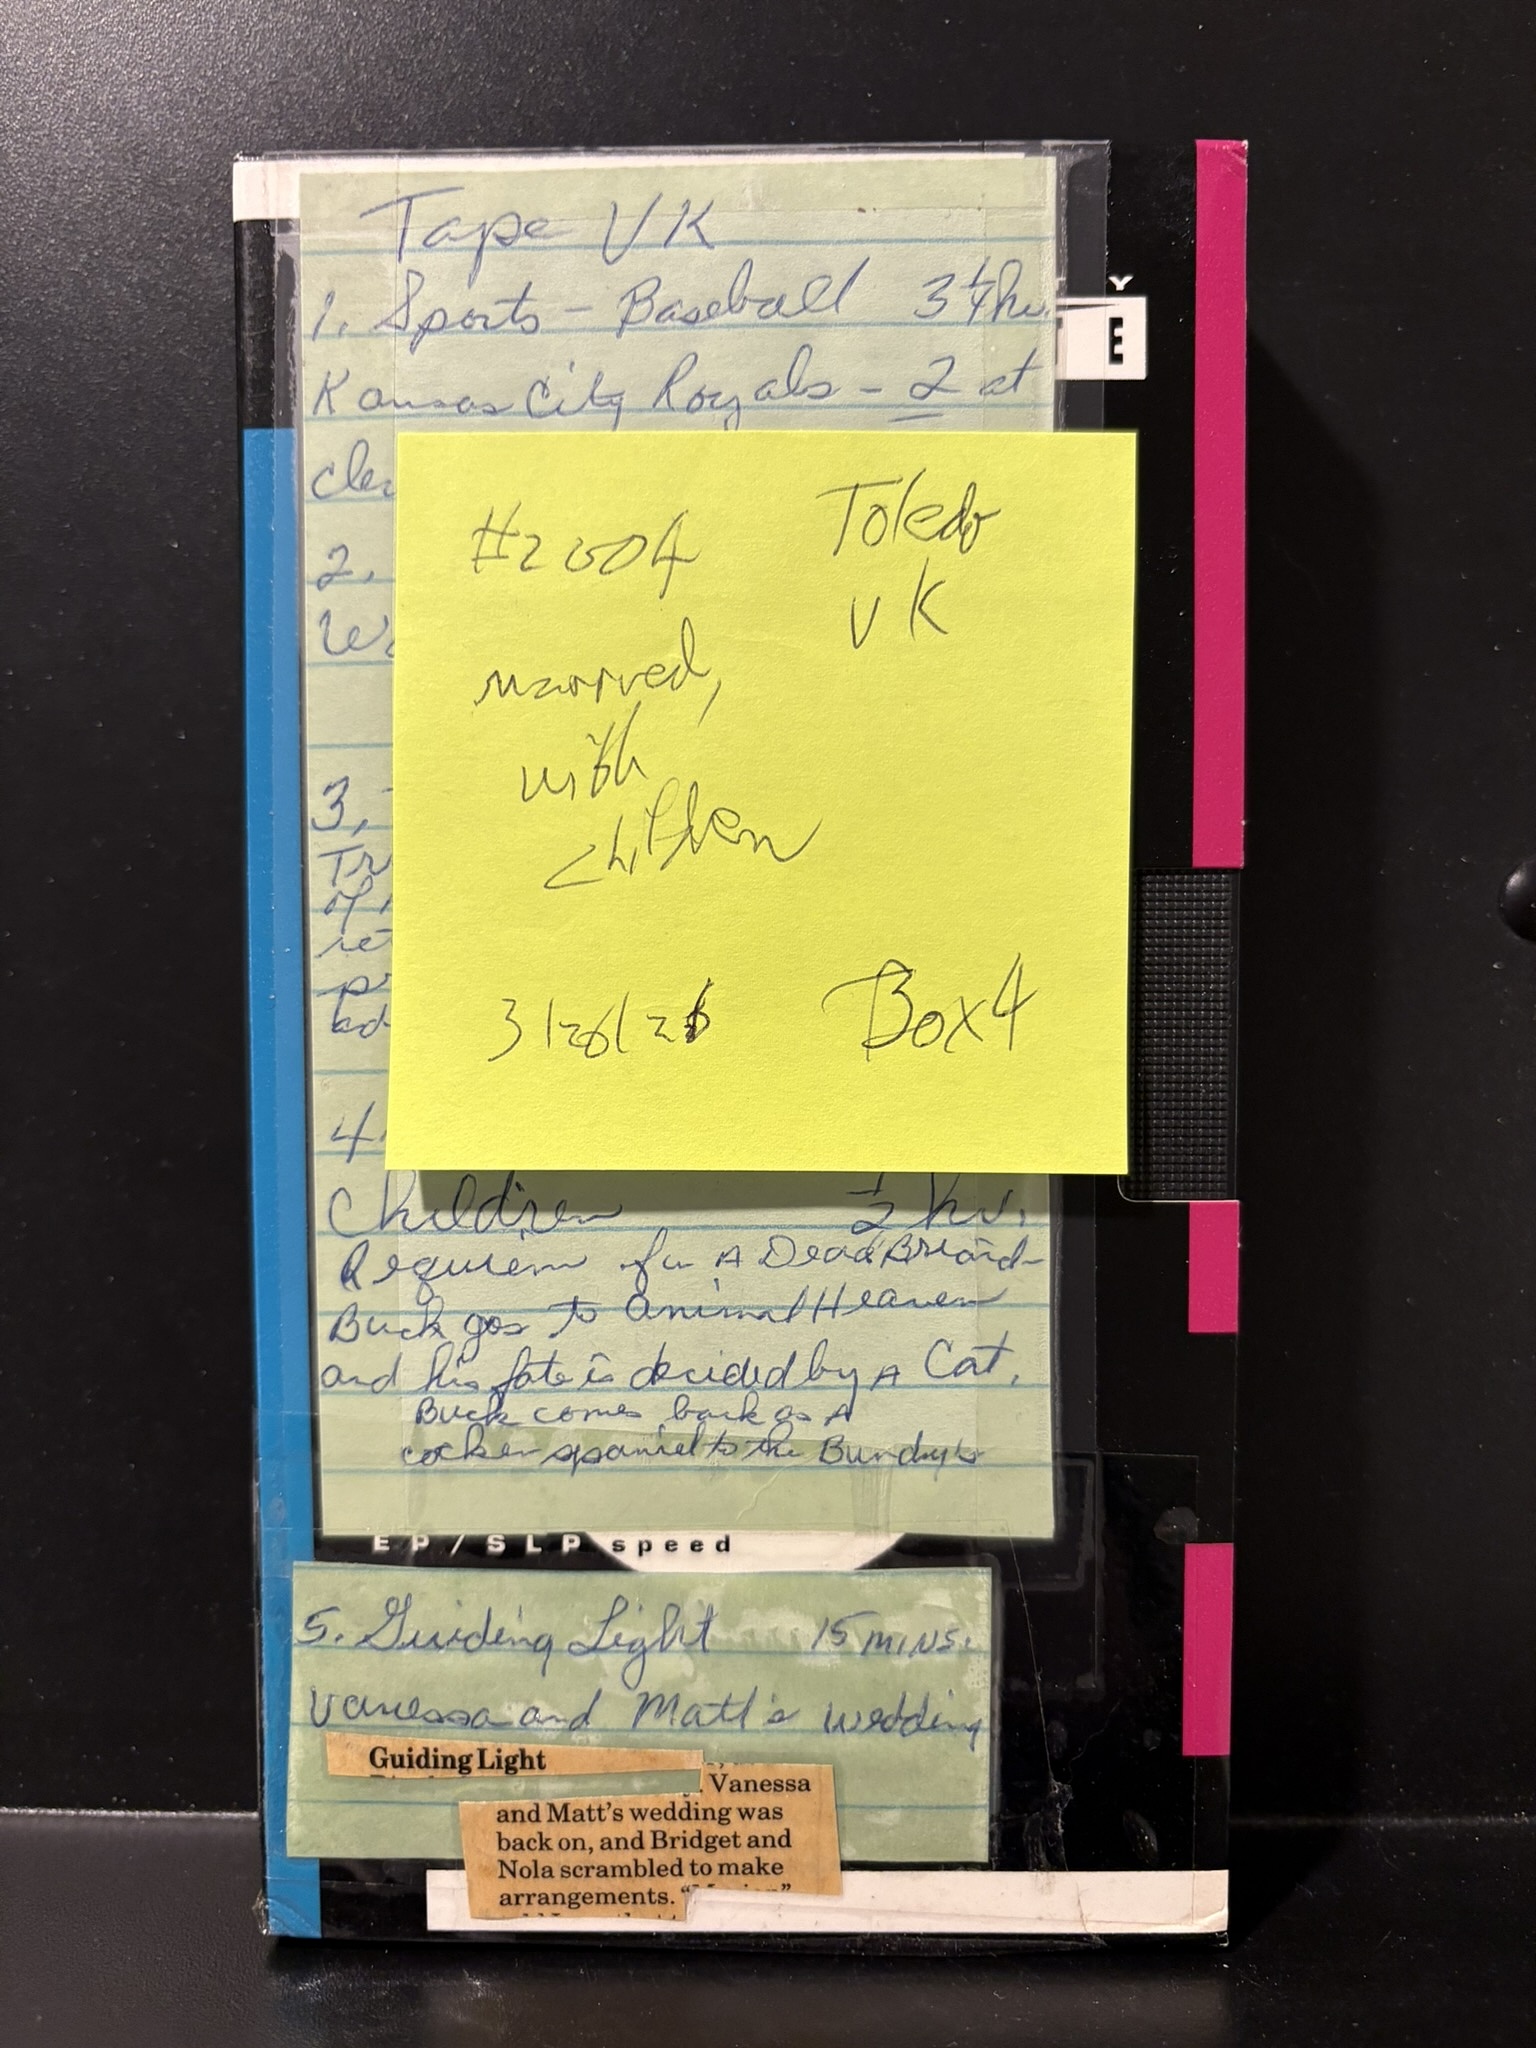 Tape VK
1. Sports - Baseball 3 1/4 hr.
Kansas City Royals - 2 at
cle
Y
E
#2004
Toledo
VK
married,
with
children
3/26/26
Box 4
2.
We
3.
Tr
of
ret
pr
ad
4.
Children 1/2 hr.
Requiem for A Dead Briard -
Buck goes to animal Heaven
and his fate is decided by A Cat.
Buck comes back as A
cocker spaniel to the Bundy's
EP/SLP speed
5. Guiding Light 15 MINS.
Vanessa and Matt's wedding
Guiding Light
. Vanessa
and Matt's wedding was
back on, and Bridget and
Nola scrambled to make
arrangements.